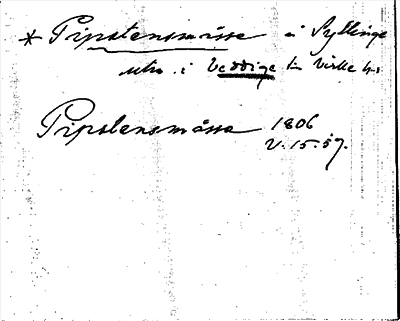 * Pipstensmåsse i Syllinge
utm. i Veddige sn Viske hd
Pipstensmåssa 1806
V. 15. 57.